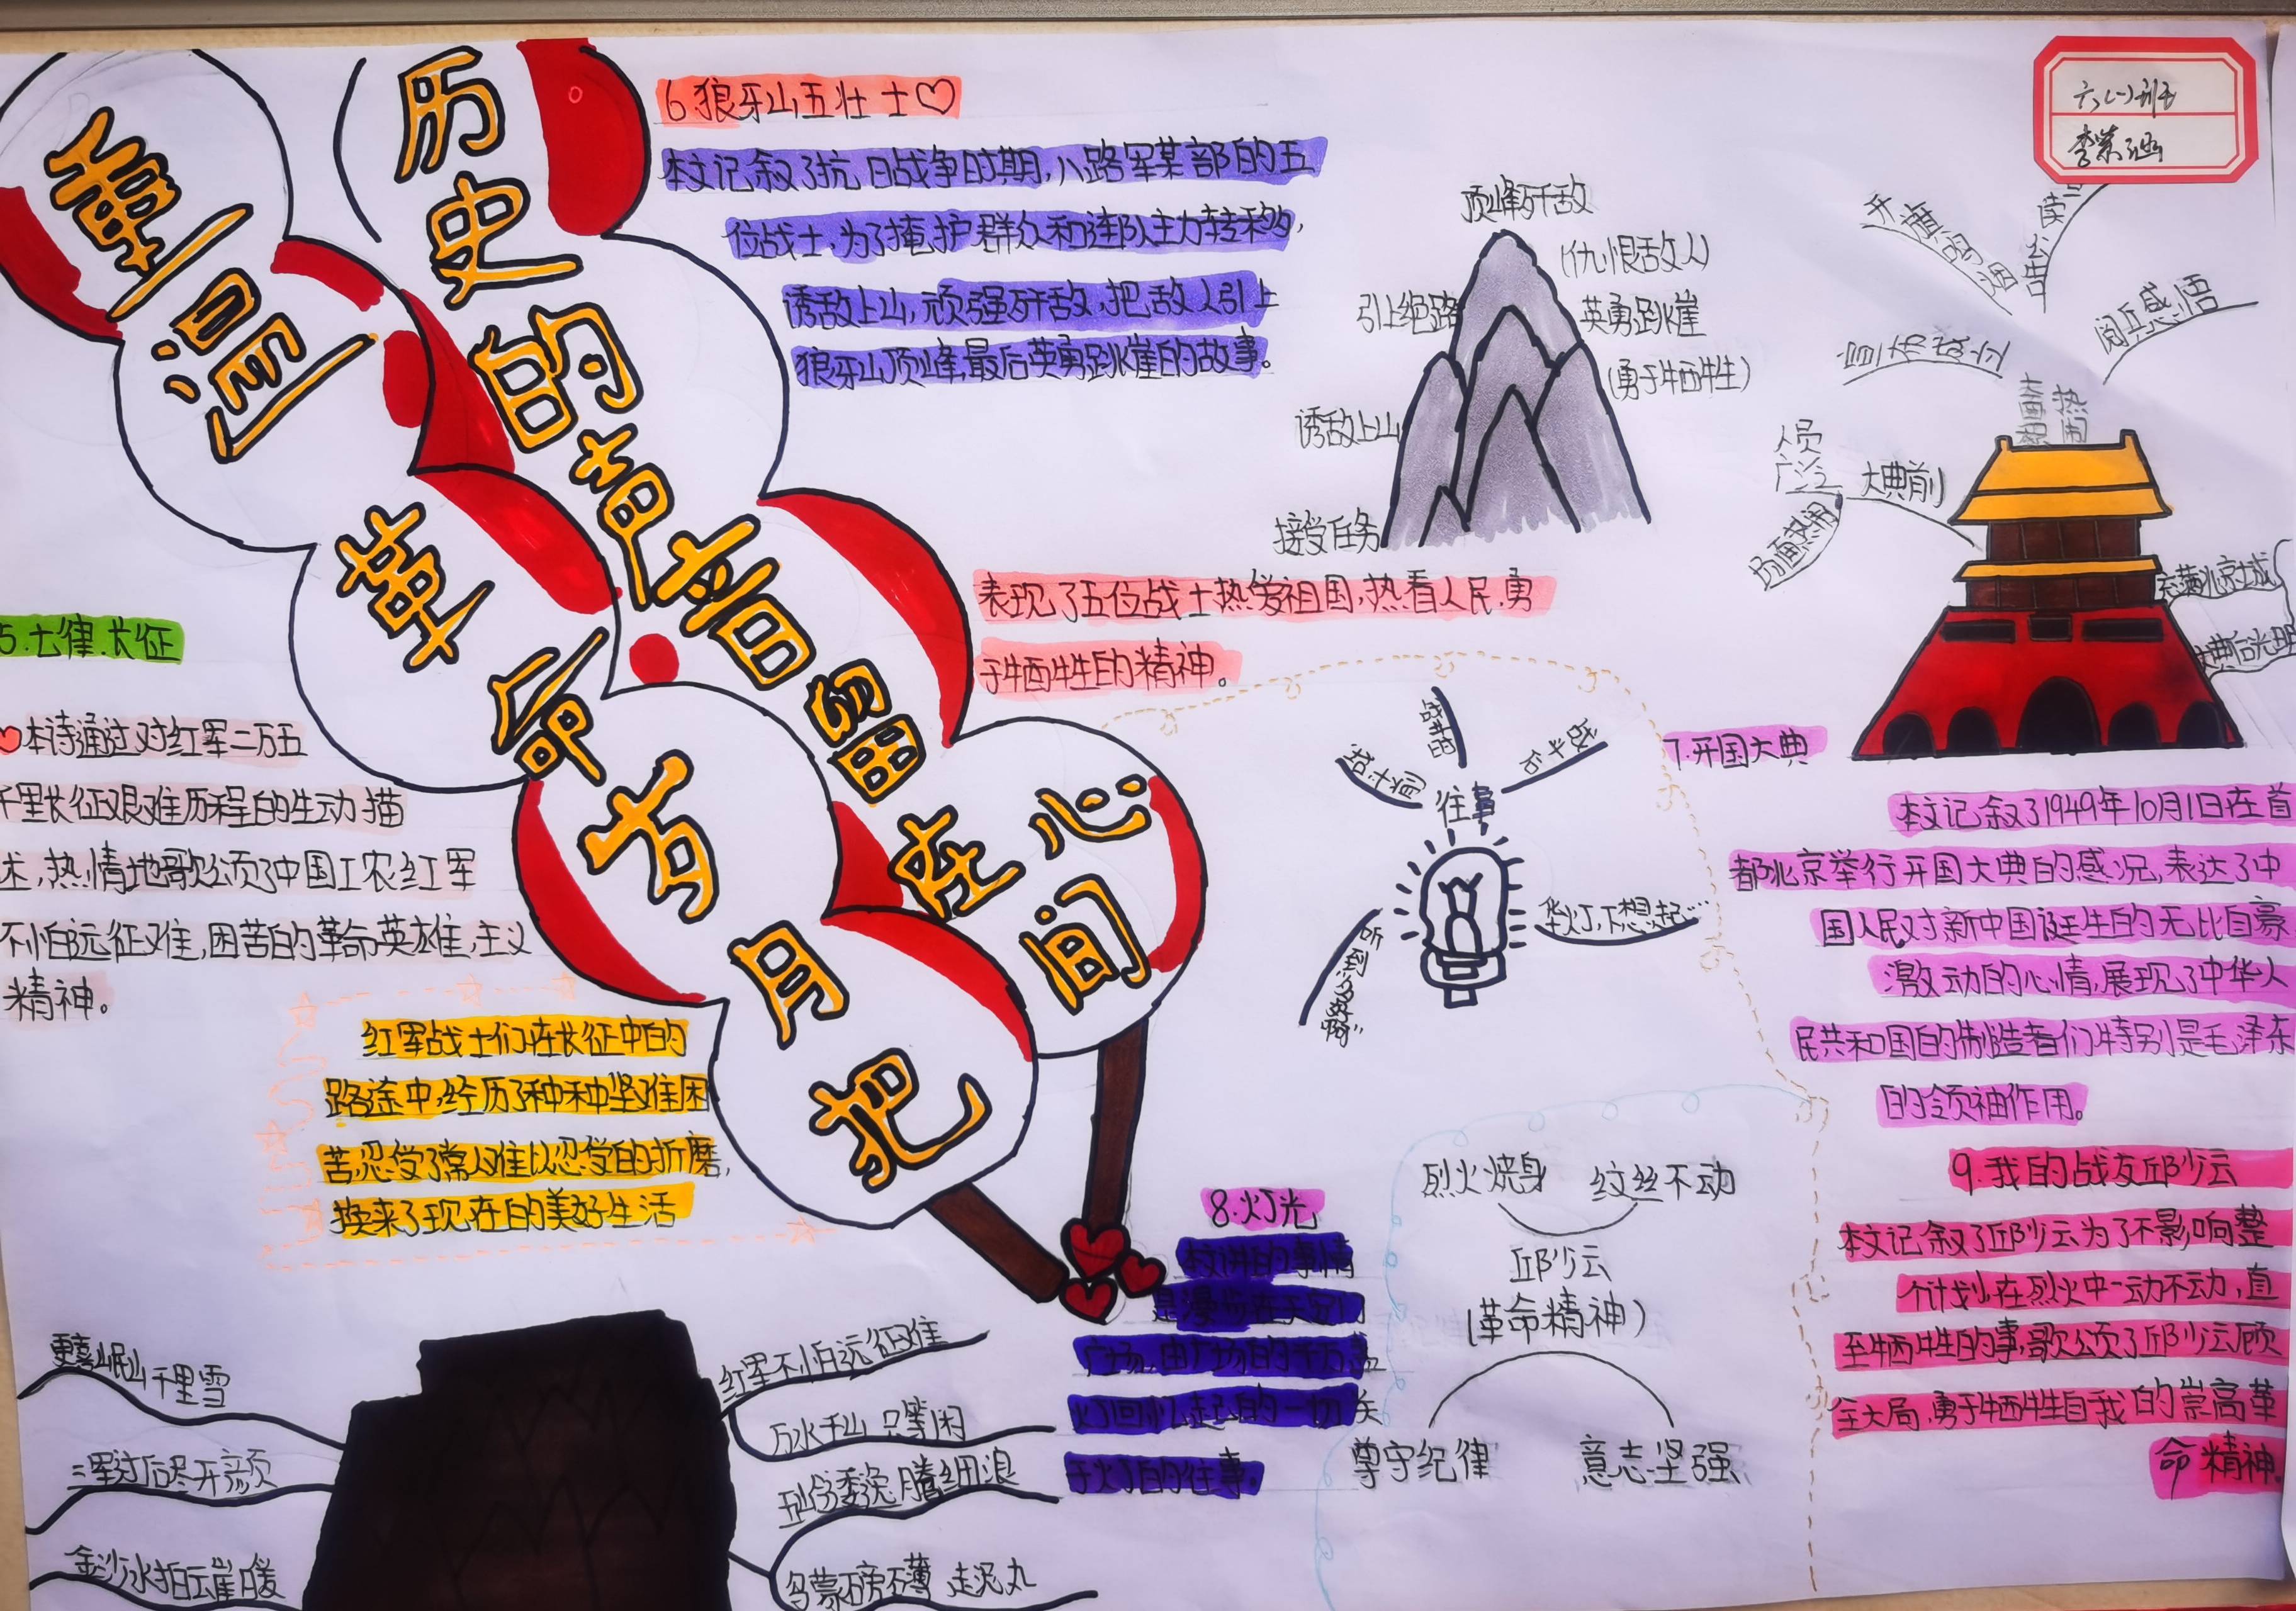 重温
革命岁月把
历史的声音留在心间
六(一)班
5.七律.长征
本诗通过对红军二万五
千里长征艰难历程的生动描
述,热情地歌颂了中国工农红军
不怕远征难,困苦的革命英雄主义
精神。
红军战士们在长征中的
路途中,经历了种种坚难困
苦,忍受了常人难以忍受的折磨,
换来了现在的美好生活
更喜岷山千里雪
三军过后尽开颜
金沙水拍云崖暖
红军不怕远征难
万水千山只等闲
五岭逶迤腾细浪
乌蒙磅礴走泥丸
6.狼牙山五壮士
本文记叙了抗日战争时期,八路军某部的五
位战士,为了掩护群众和连队主力转移,
诱敌上山,顽强歼敌,把敌人引上
狼牙山顶峰,最后英勇跳崖的故事。
顶峰歼敌
(仇恨敌人)
引上绝路
英勇跳崖
(勇于牺牲)
诱敌上山
接受任务
表现了五位战士热爱祖国,热看人民,勇
于牺牲的精神。
7.开国大典
宣布成立
阅兵感悟
人员
广泛
大典前
场面热闹
充满北京城
大典后光明
本文记叙了1949年10月1日在首
都北京举行开国大典的感况,表达了中
国人民对新中国诞生的无比自豪
激动的心情,展现了中华人
民共和国的制造者们特别是毛泽东
的领袖作用。
8.灯光
本文讲的事情
是漫步在天安门
广场,由广场的千万盏
灯回忆起的一切关
于灯的往事。
战斗前
战斗后
往事
听到“多好啊”
9.我的战友邱少云
本文记叙了邱少云为了不影响整
个计划,在烈火中一动不动,直
至牺牲的事,歌颂了邱少云顾
全大局,勇于牺牲自我的崇高革
命精神。
烈火烧身
纹丝不动
邱少云
(革命精神)
尊守纪律
意志坚强